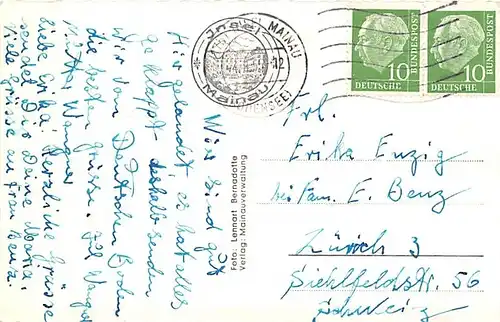 Wir sind gut
hier gelandet, es hat alles
geklappt deshalb senden
wir vom Deutschen Boden
die besten Grüsse. Für Wangst
Mutter Wanger
Liebe Erika! herzliche Grüsse
sendet Dir Deine Maria.
viele Grüsse an Frau Benz.
Foto: Lennart Bernadotte
Verlag: Mainauverwaltung
MAINAU
Insel
12
Mainau
(BODENSEE)
10
DEUTSCHE
BUNDESPOST
10
DEUTSCHE
BUNDESPOST
Frl.
Erika Enzig
bei Fam. E. Benz
Zürich 3
Siehlfeldstr. 56
Schweiz